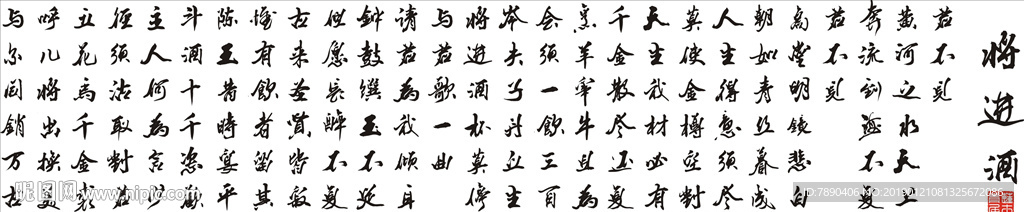 將進酒
君不見
黄河之水天上
奔流到海不復
君不見
高堂明鏡悲白
朝如青絲暮成
人生得意須尽
莫使金樽空對
天生我材必有
千金散尽还復
烹羊宰牛且為
会須一飲三百
岑夫子丹丘生
將進酒杯莫停
与君歌一曲
請君為我傾耳
鐘鼓饌玉不足
但愿長醉不復
古来圣賢皆寂
惟有飲者留其
陈王昔時宴平
斗酒十千恣歡
主人何為言少
徑須沽取對君
五花馬千金裘
呼儿將出換美
与尔同銷万古
昵图网 www.nipic.com
ID:7890406 NO:20190121081325672086